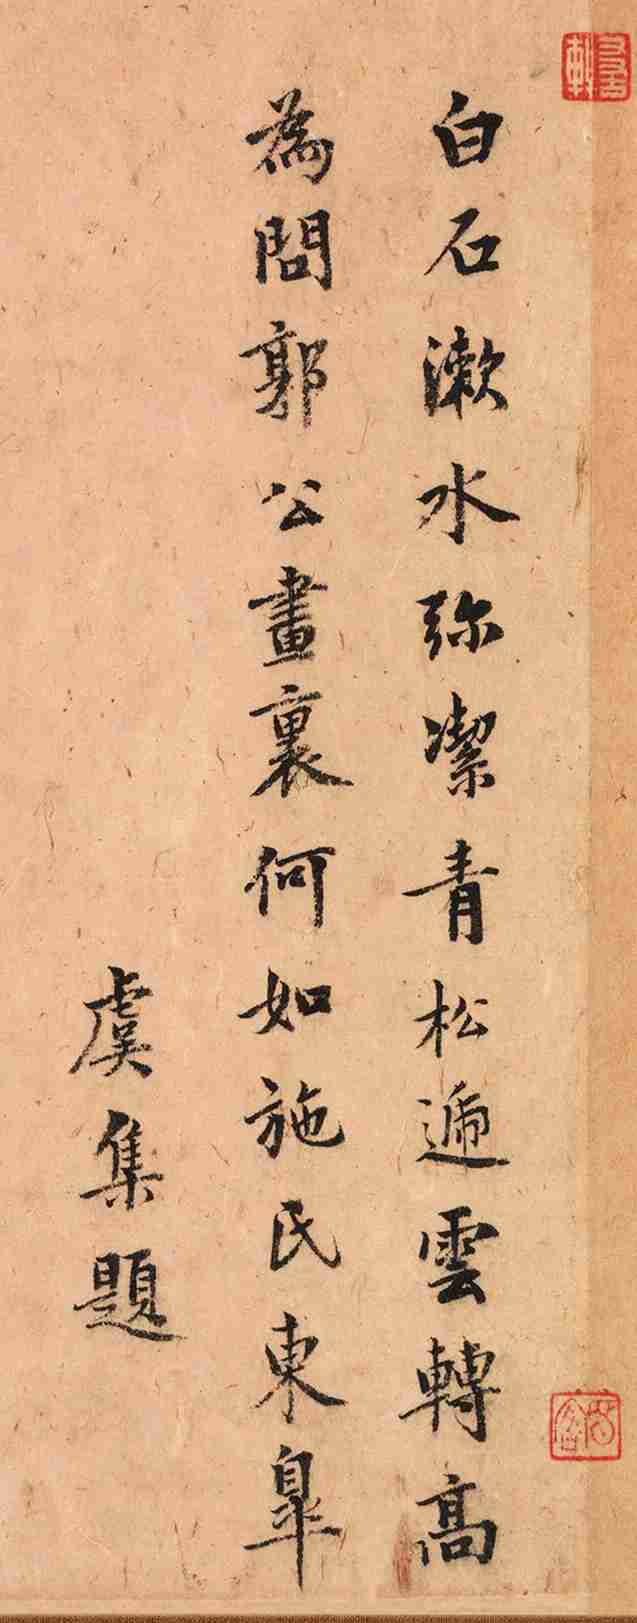 白石漱水弥潔青松遞雲轉高
為問郭公畫裏何如施氏東臯
虞集題